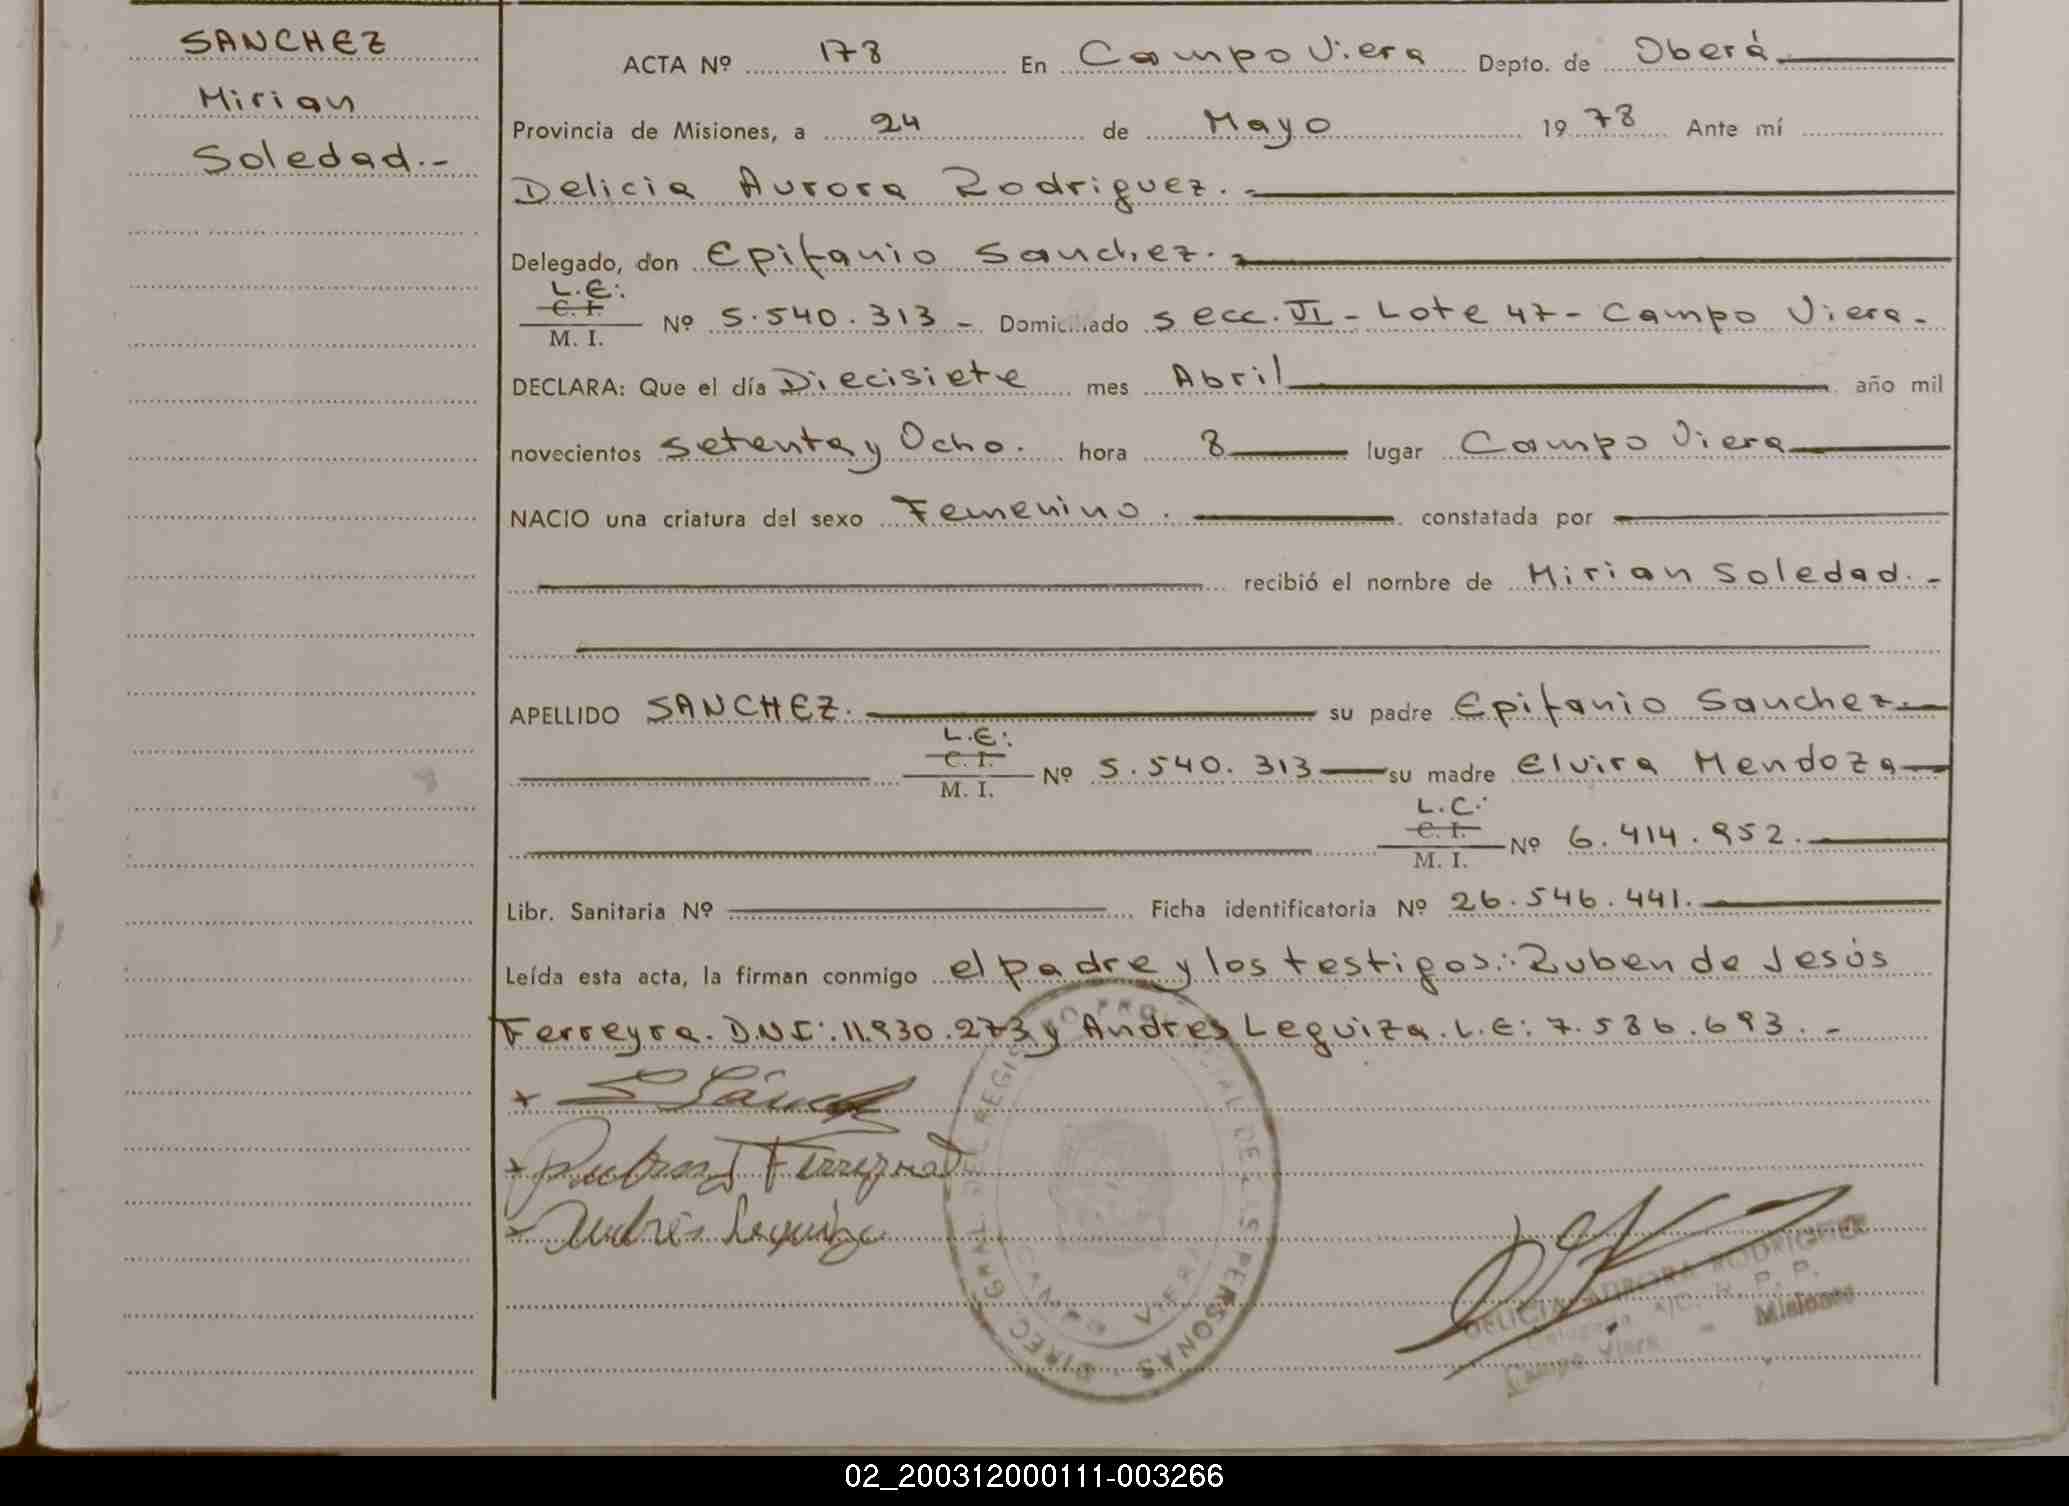 SANCHEZ
Mirian
Soledad.-
ACTA Nº 178 En Campo Viera Depto. de Oberá
Provincia de Misiones, a 24 de Mayo 1978 Ante mí
Delicia Aurora Rodriguez.-
Delegado, don Epifanio Sanchez.-
L.E:
C. I.
M. I.
Nº 5.540.313- Domiciliado secc. VI - Lote 47 - Campo Viera-
DECLARA: Que el día Diecisiete mes Abril año mil
novecientos setenta y Ocho. hora 8 lugar Campo Viera
NACIO una criatura del sexo Femenino. constatada por
recibió el nombre de Mirian Soledad.-
APELLIDO SANCHEZ. su padre Epifanio Sanchez.-
L.E:
C. I.
M. I.
Nº 5.540.313 su madre Elvira Mendoza
L.C:
C. I.
M. I.
Nº 6.414.952.
Libr. Sanitaria Nº Ficha identificatoria Nº 26.546.441.
Leída esta acta, la firman conmigo el padre y los testigos: Ruben de Jesús
Ferreyra. D.N.I: 11.930.273 y Andres Leguiza. L.E: 7.586.693.-
DIREC. GRAL. DEL REGISTRO PROVINCIAL DE LAS PERSONAS
CAMPO VIERA
Andrés Leguiza
DELICIA AURORA RODRIGUEZ
Delegada R. P. P.
Campo Viera - Misiones
02_200312000111-003266